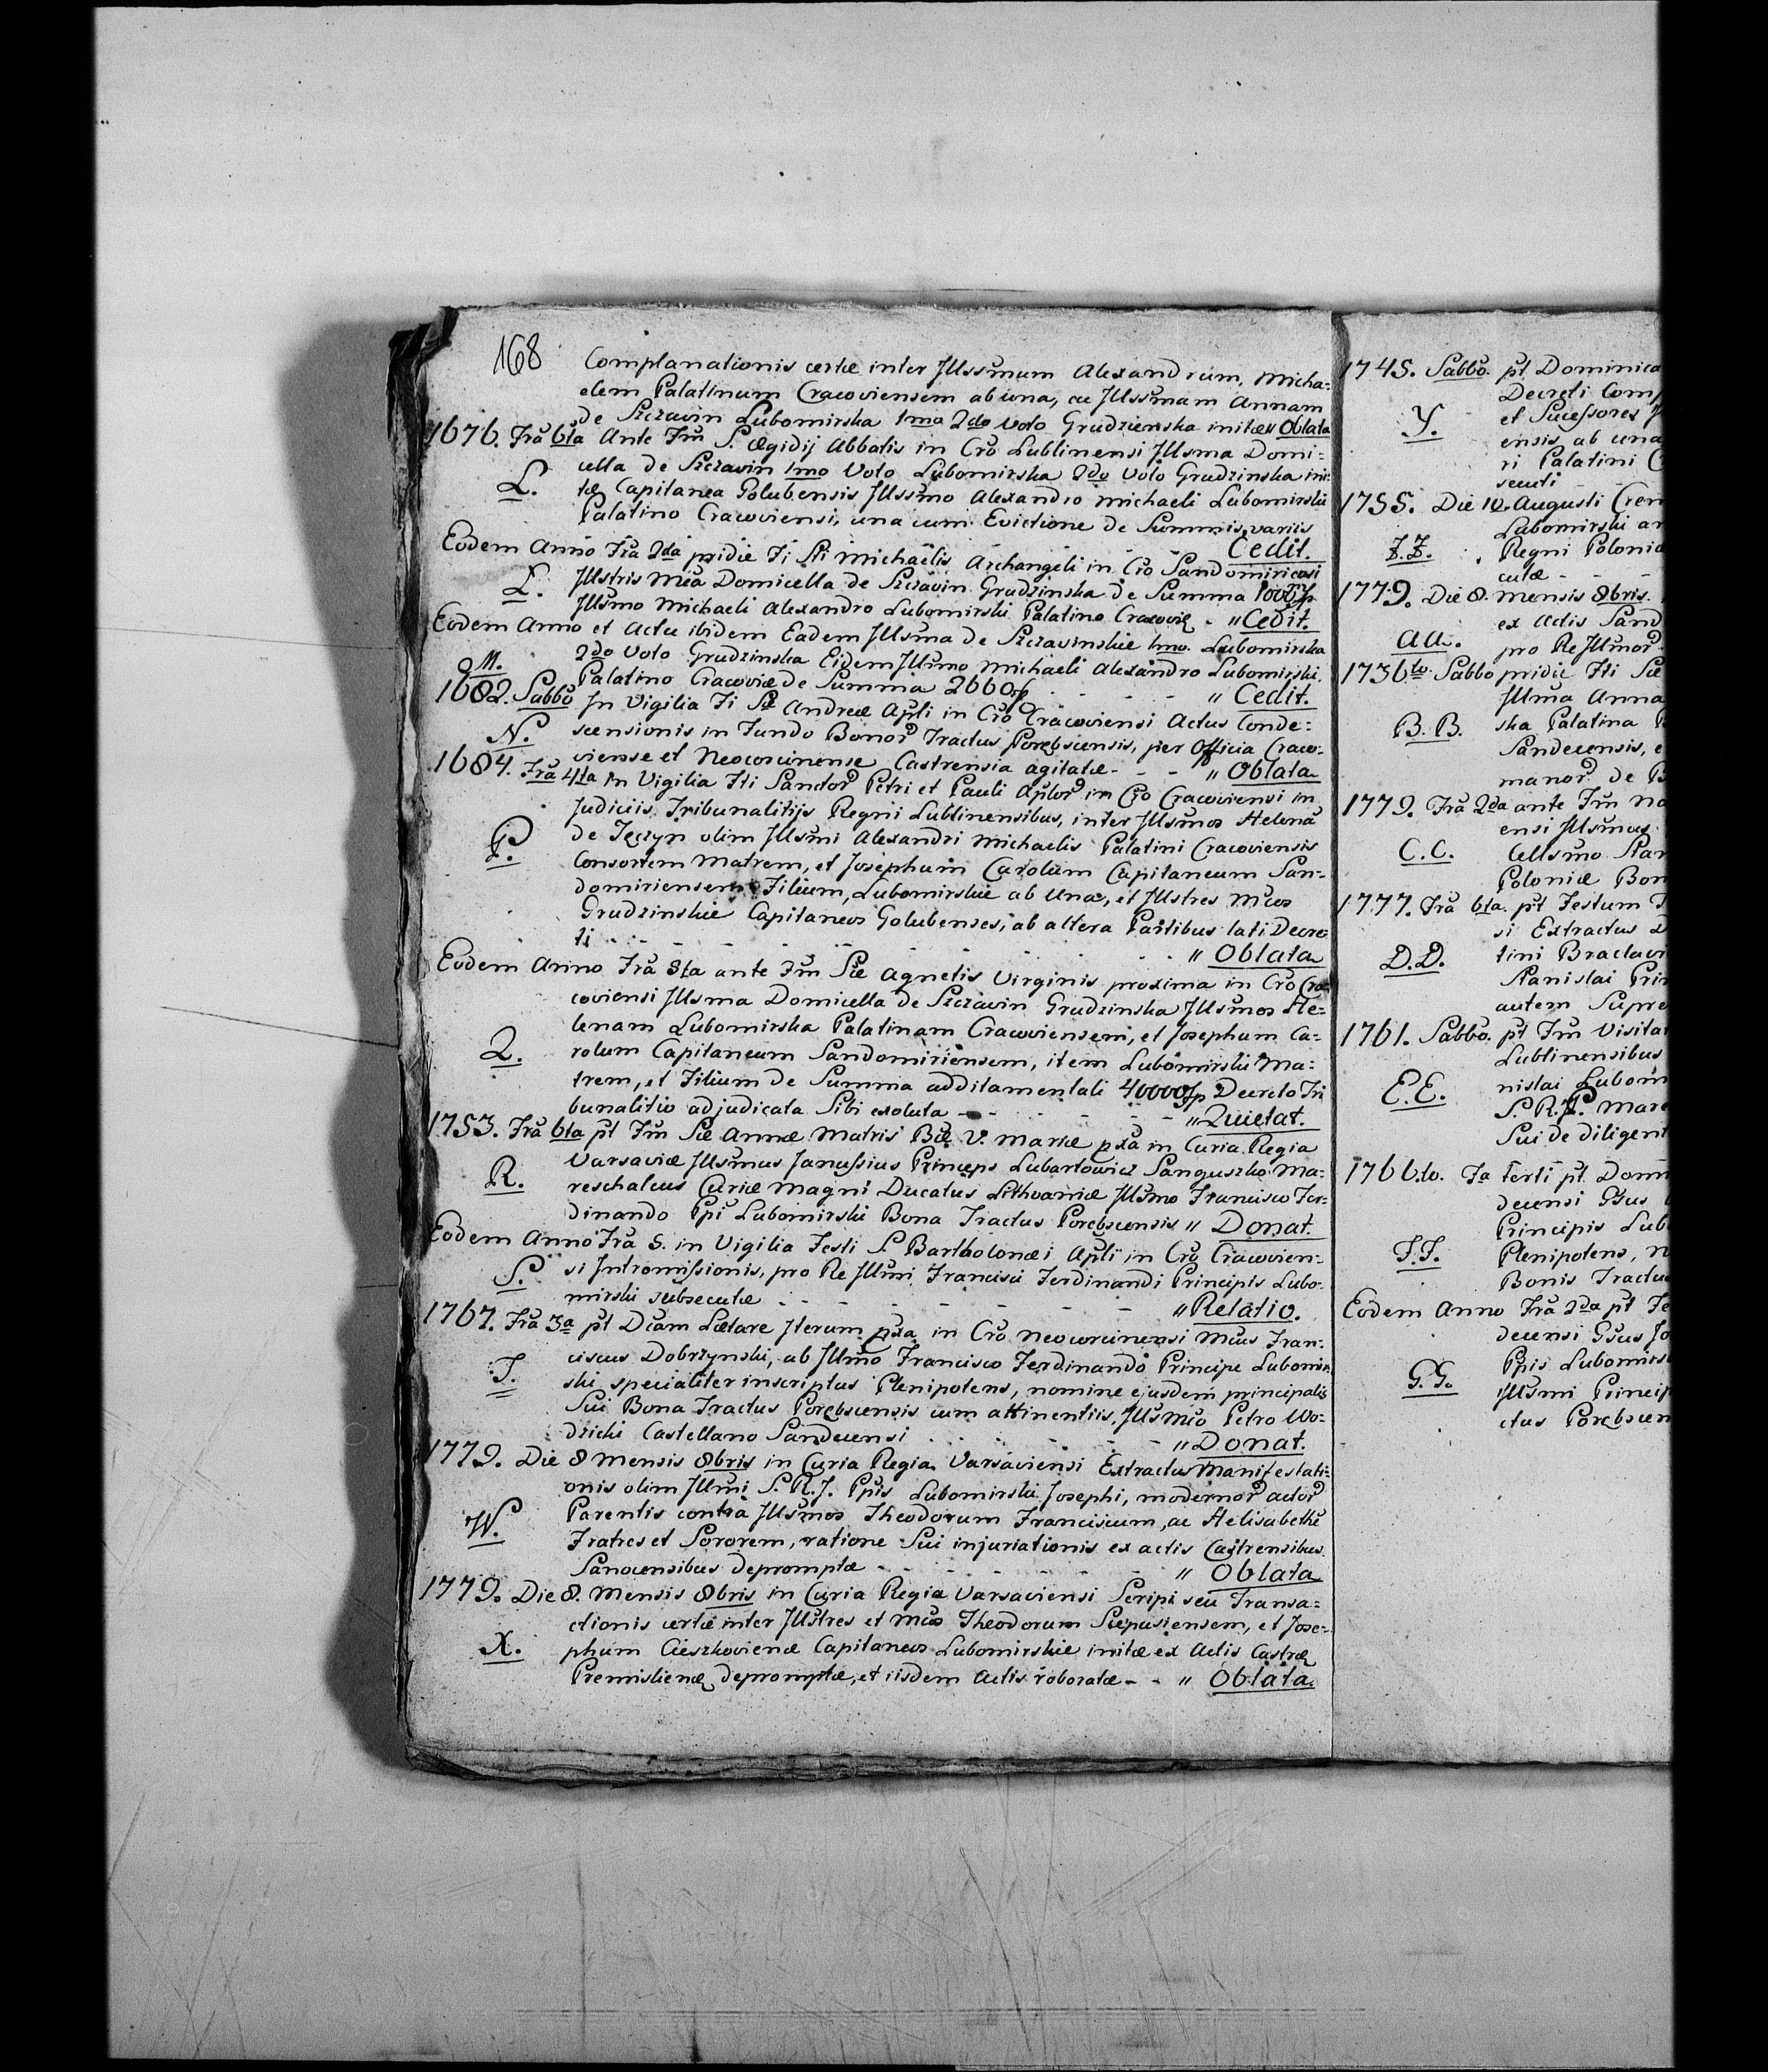 168
Complanationis certæ inter Jllssmum Alexandrum, Micha=
elem Palatinum Cracoviensem ab una, ac Jllssmam Annam
de Szczavin Lubomirska 1mo 2do Voto Grudzienska initæ „ Oblata
1676. Fra 6ta Ante Fm S. Ægidij Abbatis in Cro Lublinensi Jllsma Domi=
cella de Szczavin 1mo Voto Lubomirska 2do Voto Grudzinska ini=
L. tæ Capitanea Golubensis Jllssmo Alexandro Michaeli Lubomirski
Palatino Cracoviensi, una cum Evictione de Summis variis
Cedit.
Eodem Anno Fra 2da pridie Fi Sti Michaëlis Archangeli in Cro Sandomiriensi
Ł. Jllstris Mca Domicella de Szczavin Grudzinska de Summa
Jllsmo Michaeli Alexandro Lubomirski Palatino Cracoviæ - „ Cedit.
Eodem Anno et Actu ibidem Eadem Jllsma de Szczavinskie 1mo Lubomirska
M. 2do Voto Grudzinska Eidem Jllsmo Michaeli Alexandro Lubomirski
Palatino Cracoviæ de Summa 2660 - - - „ Cedit.
1682. Sabbo Jn Vigilia Fi S Andreæ Apli in Cro Cracoviensi Actus Conde=
N. scensionis in Fundo Bonor Tractus Porębscensis, per Officia Craco=
viense et Neocorcinense Castrensia agitatæ - - - „ Oblata
1684. Fra 4ta in Vigilia Fti Sanctor Petri et Pauli Aplor in Cro Cracoviensi in
Judiciis Tribunalitijs Regni Lublinensibus, inter Jllsmos Helenā
P. de Tęczyn olim Jllsmi Alexandri Michaelis Palatini Cracoviensis
Consortem Matrem, et Josephum Carolum Capitaneum San=
domiriensem Filium, Lubomirskie ab Una, et Jllstres Mcos
Grudzinskie Capitaneos Golubenses, ab altera Partibus lati Decre=
ti - - - - - - „ Oblata
Eodem Anno Fra 5ta ante Fm Stæ Agnetis Virginis proxima in Cro Cra=
coviensi Jllsma Domicella de Szczavin Grudzinska Jllsmos He=
lenam Lubomirska Palatinam Cracoviensem, et Josephum Ca=
Q. rolum Capitaneum Sandomiriensem, item Lubomirski Ma=
trem, et Filium de Summa additamentali 40000 Decreto Tri
bunalitio adjudicata Sibi exoluta - - - - „ Quietat.
1753. Fra 6ta pt Fm Stæ Annæ Matris Bæ V. Mariæ pxa in Curia Regia
Varsaviæ Jllsmus Janussius Princeps Lubartowicz Sanguszko Ma=
R. reschalcus Curiæ Magni Ducatus Lithvaniæ Jllsmo Francisco Fer=
dinando Ppi Lubomirski Bona Tractus Porębscensis „ Donat.
Eodem Anno Fra 5. in Vigilia Festi S. Bartholomæi Apli in Cro Cracovien=
S. si Intromissionis, pro Re Jllmi Francisci Ferdinandi Principis Lubo=
mirski subsecutæ - - - - - - „ Relatio.
1767. Fra 3a pt Dcam Lætare Jterum pxa in Cro Neocorcinensi Mcus Fran=
ciscus Dobrzynski, ab Jllmo Francisco Ferdinando Principe Lubomir=
T. ski specialiter inscriptus Plenipotens, nomine ejusdem principalis
Sui Bona Tractus Porębscensis cum attinentiis, Jllsmo Petro Wo=
dzicki Castellano Sandecensi - - - - „ Donat.
1779. Die 8 Mensis 8bris in Curia Regia Varsaviensi Extractus Manifestati=
onis olim Jllmi S. R. J. Ppis Lubomirski Josephi, modernor actor
W. Parentis contra Jllsmos Theodorum Franciscum, ac Helisabethē
Fratres et Sororem, ratione Sui injuriationis ex actis Castrensibus
Sanocensibus depromptæ - - - - „ Oblata
1779. Die 8. Mensis 8bris in Curia Regia Varsaviensi Scripi seu Transa=
ctionis certæ inter Jllstres et Mcos Theodorum Scepusiensem, et Jose=
X. phum Cieszkoviens Capitaneos Lubomirskie initæ ex Actis Castren
Premisliens depromptæ, et iisdem Actis roboratæ - - „ Oblata.
1745. Sabbo. pt Dominica
Decreti Comp
Y. et Sucessores
ensis ab una
ri Palatini C
secuti
1755. Die 10 Augusti Crem
Lubomirski ar
Z.Z. Regni Poloniæ
cutæ -
1779. Die 8. mensis 8bris.
ex Actis Sand
AA. pro Re Jllmor
1736to. Sabbo pridie Fti Sæ
Jllma Anna
B.B. ska Palatina
Sandecensis, e
manor de
1779. Fra 2da ante Fm Na
ensi Jllsmus
C.C. Cellsmo Stan
Poloniæ Bon
1777. Fra 6ta pt Festum
si Extractus D
D.D. tini Braclavi
Stanislai Prin
autem Supre
1761. Sabbo. pt Fm Visitat
Lublinensibus
E.E. nislai Lubom
S.R.J. Mare
Sui de diligent
1766.to. Fa ferti pt Dom
decensi Gsus
Principis Lub
F.F. Plenipotens, n
Bonis Tractus
Eodem Anno Fra 2da pt Fe
decensi Gsus Jo
Ppis Lubomirs
G.G. Jllsmi Princip
ctus Porębscen